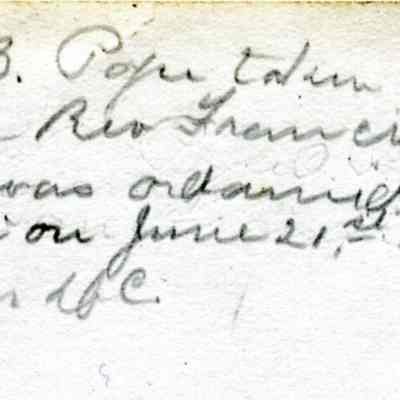 B. Pope taken
Rev Franci
was ordained
on June 21, st
C.